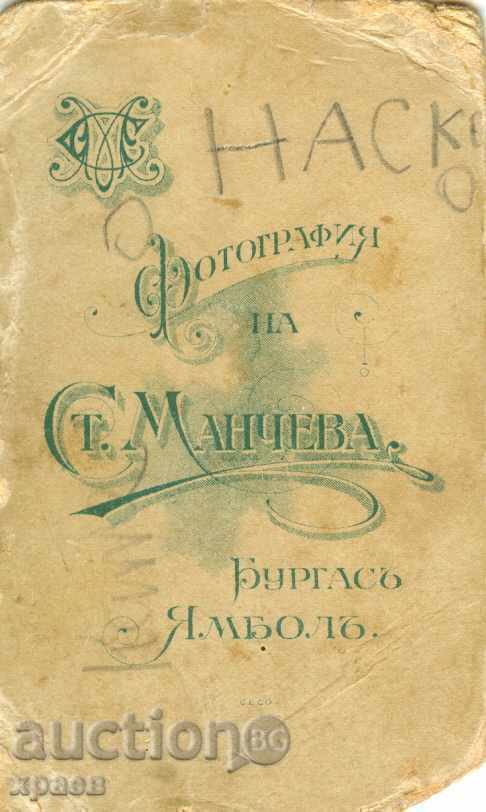 НАСКО
Фотография
на
Ст. Манчева
Бургасъ
Ямболъ.
auction BG
храбв